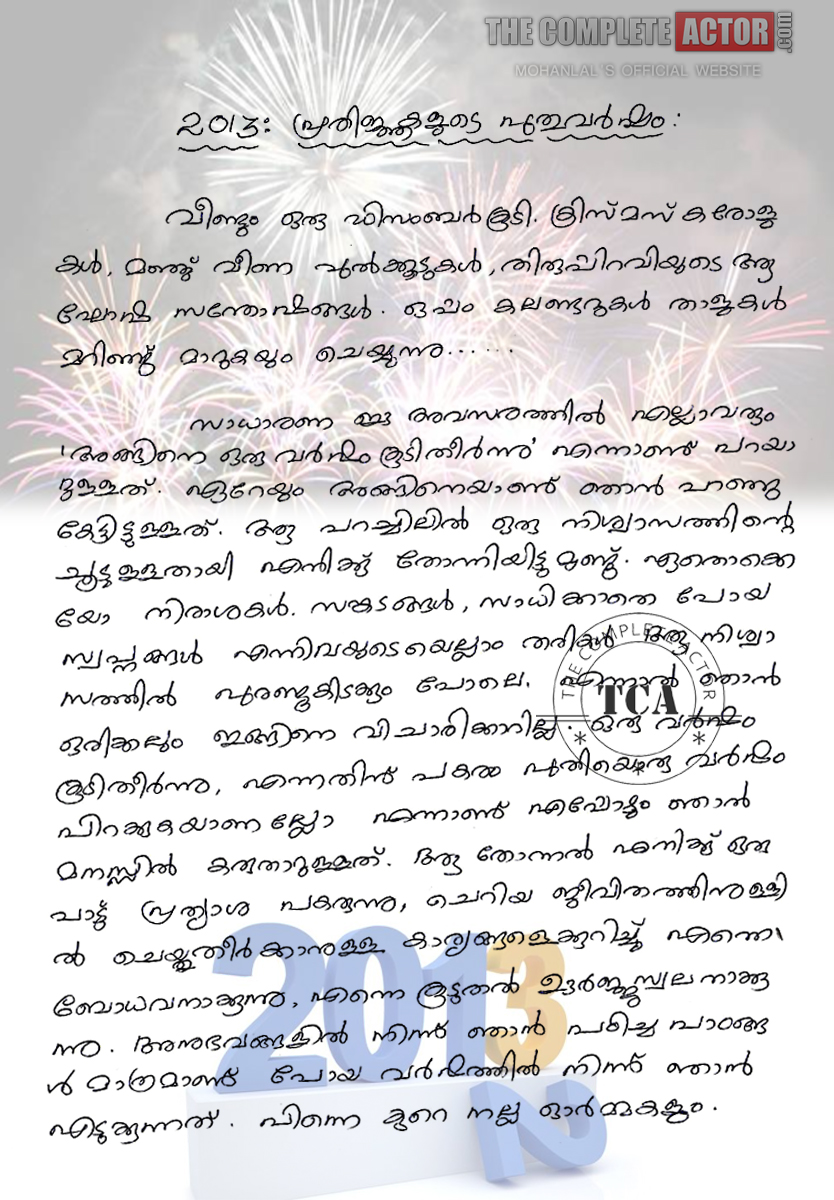 THE COMPLETE ACTOR .com
MOHANLAL'S OFFICIAL WEBSITE
2013: പ്രതിജ്ഞകളുടെ പുതുവർഷം:
വീണ്ടും ഒരു ഡിസംബർ കൂടി. ക്രിസ്മസ് കരോളു
കൾ, മഞ്ഞു വീണ പുൽക്കൂടുകൾ, തിരുപ്പിറവിയുടെ ആ
ഘോഷ സന്തോഷങ്ങൾ. ഒപ്പം കലണ്ടറുകൾ താളുകൾ
മറിഞ്ഞ് മാറുകയും ചെയ്യുന്നു......
സാധാരണ ഈ അവസരത്തിൽ എല്ലാവരും
'അങ്ങിനെ ഒരു വർഷം കൂടിതീർന്നു' എന്നാണ് പറയാ
റുള്ളത്. ഏറേയും അങ്ങിനെയാണ് ഞാൻ പറഞ്ഞു
കേട്ടിട്ടുള്ളത്. ആ പറച്ചിലിൽ ഒരു നിശ്വാസത്തിന്റെ
ചൂടുള്ളതായി എനിക്ക് തോന്നിയിട്ടുമുണ്ട്. ഏതൊക്കെ
യോ നിരാശകൾ. സങ്കടങ്ങൾ, സാധിക്കാതെ പോയ
സ്വപ്നങ്ങൾ എന്നിവയുടെയെല്ലാം തരികൾ ആ നിശ്വാ
സത്തിൽ പുരണ്ടുകിടക്കും പോലെ. എന്നാൽ ഞാൻ
ഒരിക്കലും ഇങ്ങിനെ വിചാരിക്കാറില്ല. ഒരു വർഷം
കൂടിതീർന്നു, എന്നതിന് പകരം പുതിയൊരു വർഷം
പിറക്കുകയാണല്ലോ എന്നാണ് എപ്പോഴും ഞാൻ
മനസ്സിൽ കരുതാറുള്ളത്. ആ തോന്നൽ എനിക്ക് ഒരു
പാട് പ്രത്യാശ പകരുന്നു, ചെറിയ ജീവിതത്തിനുള്ളി
ൽ ചെയ്തുതീർക്കാനുള്ള കാര്യങ്ങളെക്കുറിച്ച് എന്നെ
ബോധവനാക്കുന്നു, എന്നെ കൂടുതൽ ഊർജ്ജസ്വലനാക്കു
ന്നു. അനുഭവങ്ങളിൽ നിന്ന് ഞാൻ പഠിച്ച പാഠങ്ങ
ൾ മാത്രമാണ് പോയ വർഷത്തിൽ നിന്ന് ഞാൻ
എടുക്കുന്നത്. പിന്നെ കുറെ നല്ല ഓർമ്മകളും.
THE COMPLETE ACTOR
TCA
2013
2